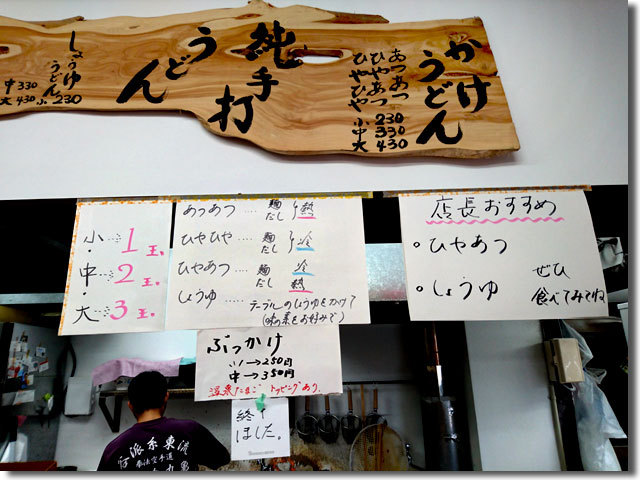 かけうどん
あつあつ
ひやあつ
ひやひや
小 230
中 330
大 430
純手打
うどん
しょうゆ
うどん
小 230
中 330
大 430
小…1玉。
中…2玉。
大…3玉
あつあつ‥‥麺 だし 熱
ひやひや‥‥麺 だし 冷
ひやあつ‥‥麺 冷
だし 熱
しょうゆ‥‥テーブルのしょうゆをかけて
(味の素をお好みで)
店長おすすめ
ひやあつ
しょうゆ
ぜひ
食べてみてね
ぶっかけ
小→250円
中→350円
温泉たまごトッピングあり。
終了
しました。
派糸東流